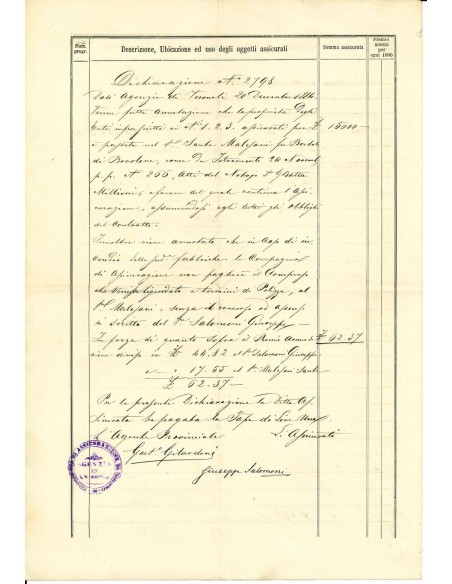 Num. progr.
Descrizione, Ubicazione ed uso degli oggetti assicurati
Somma assicurata
Premio annuo per ogni 1000
Dichiarazione N° 2798
Dall' Agenzia di Verona li 20 Dicembre 1886
Viene fatta annotazione che la proprietà degli
Enti infrascritti ai N. 1. 2. 3. assicurati per £ 15000 —
è passata nel Sante Malesani fu Bortolo
di Bovolone, come da Istrumento 24
p. p. N° 255, Atti del Notajo
a favore del quale continua l'Assi-
curazione, assumendosi egli tutti gli obblighi
del contratto. —
Inoltre viene annotato che in caso di in-
cendio delle fabbriche la Compagnia
di Assicurazione non pagherà il Compenso
che venisse liquidato a termini di Polizza, al
Malesani, senza il concorso ed assenso
in iscritto del Salomoni Giuseppe —
In forza di quanto sopra il Premio Annuo di £ 62.37
viene diviso in £ 44.82 al Salomoni Giuseppe
e " 17.55 al Malesani Sante
£ 62.37 —
Per la presente Dichiarazione la Ditta As-
sicurata ha pagata la Tassa di Lire Una
L'Agente Provinciale
L'Assicurati
Gilardoni
Giuseppe Salomoni